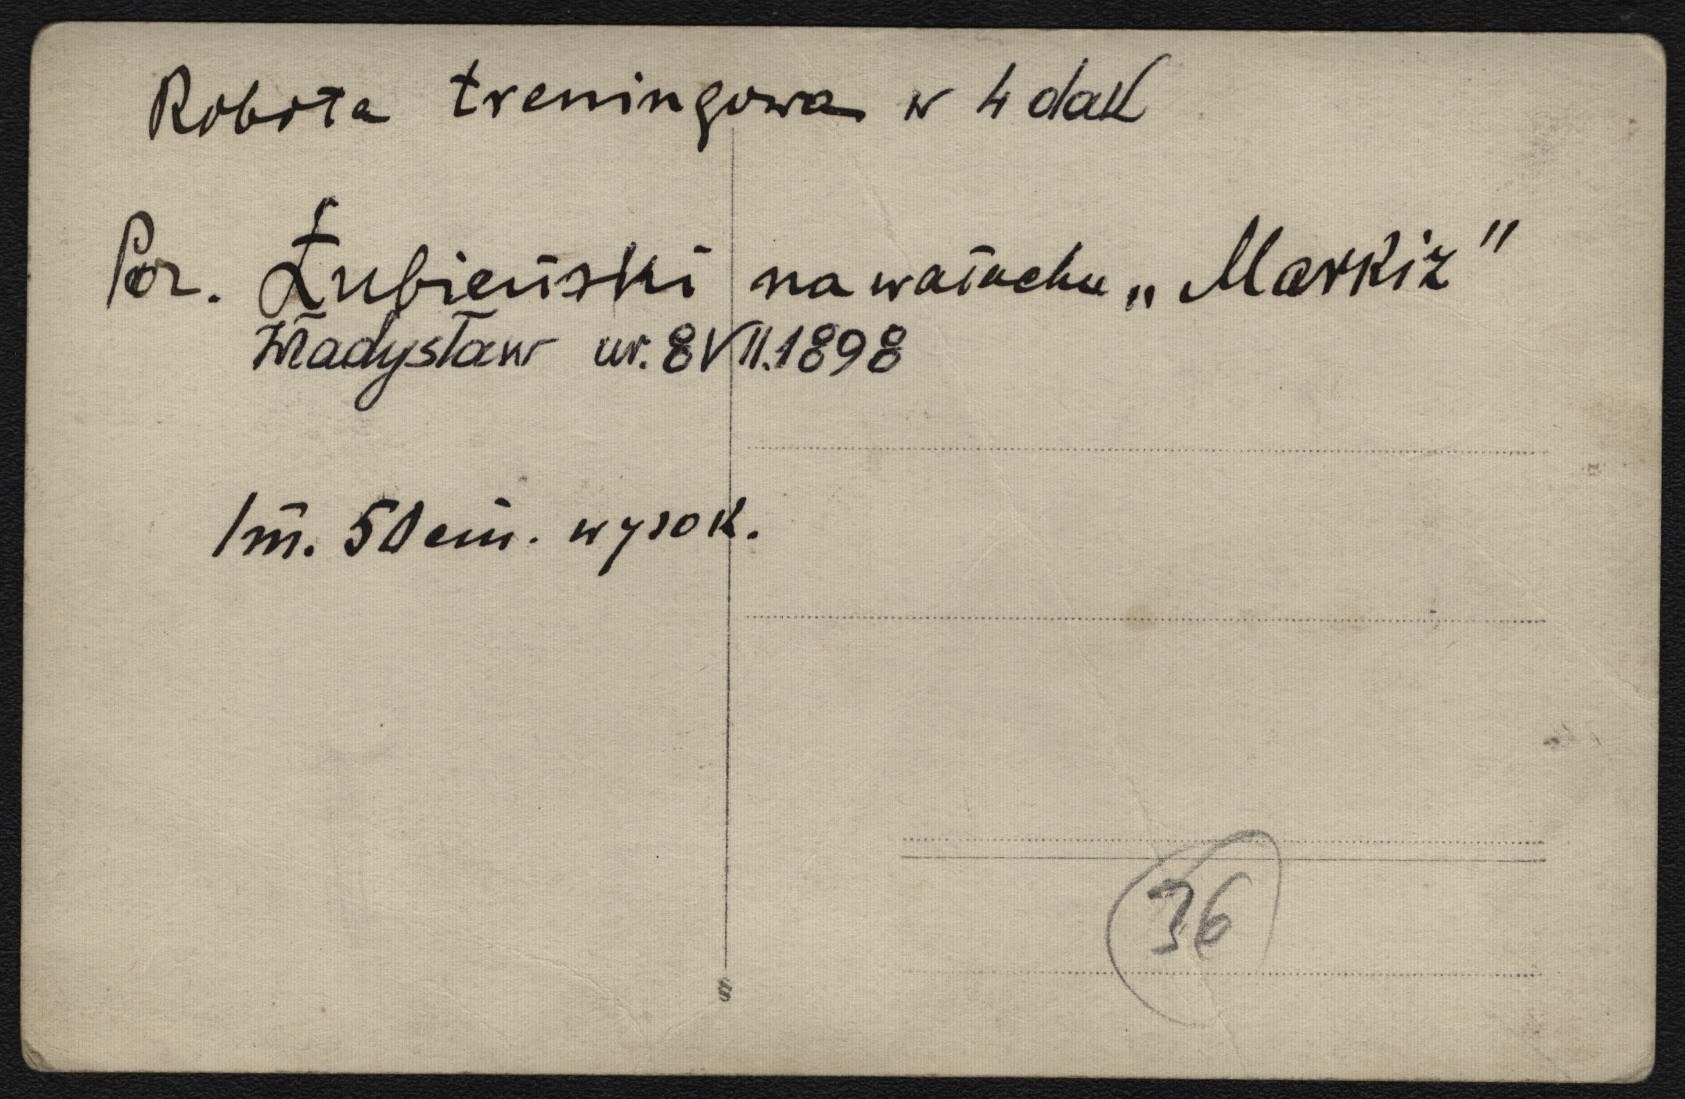 Robota treningowa w 4 daK
Por. Łubieński na wałachu „Markiz"
Władysław ur. 8 VII.1898
1 m. 50 cm. wysok.
36